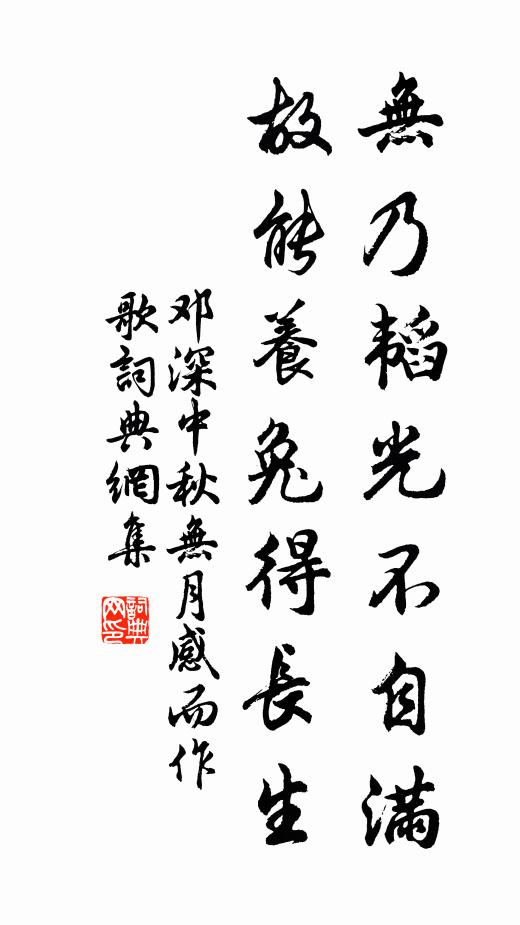 無乃韜光不自滿
故能養兔得長生
邓深中秋無月感而作
歌詞典網集
詞典网印